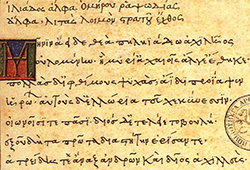 ἰλιάδος ἄλφα ὁμήρου ῥαψωδίας
ἄλφα λιτὰς λοιμὸν στρατοῦ ἔχθος
Μῆνιν ἄειδε θεὰ πηληϊάδεω ἀχιλῆος
οὐλομένην ἣ μυρί' ἀχαιοῖς ἄλγε' ἔθηκε
πολλὰς δ' ἰφθίμους ψυχὰς ἄϊδι προΐαψεν
ἡρώων αὐτοὺς δὲ ἑλώρια τεῦχε κύνεσσιν
οἰωνοῖσί τε πᾶσι διὸς δ' ἐτελείετο βουλή
ἐξ οὗ δὴ τὰ πρῶτα διαστήτην ἐρίσαντε
ἀτρείδης τε ἄναξ ἀνδρῶν καὶ δῖος ἀχιλλεύς